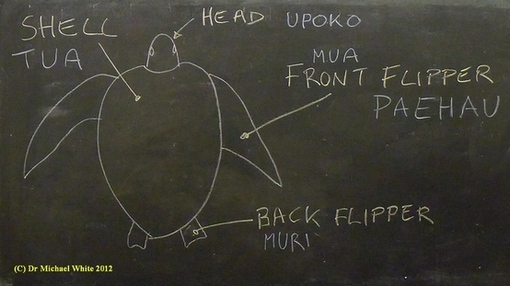 SHELL
TUA
HEAD UPOKO
MUA
FRONT FLIPPER
PAEHAU
BACK FLIPPER
MURI
(C) Dr Michael White 2012